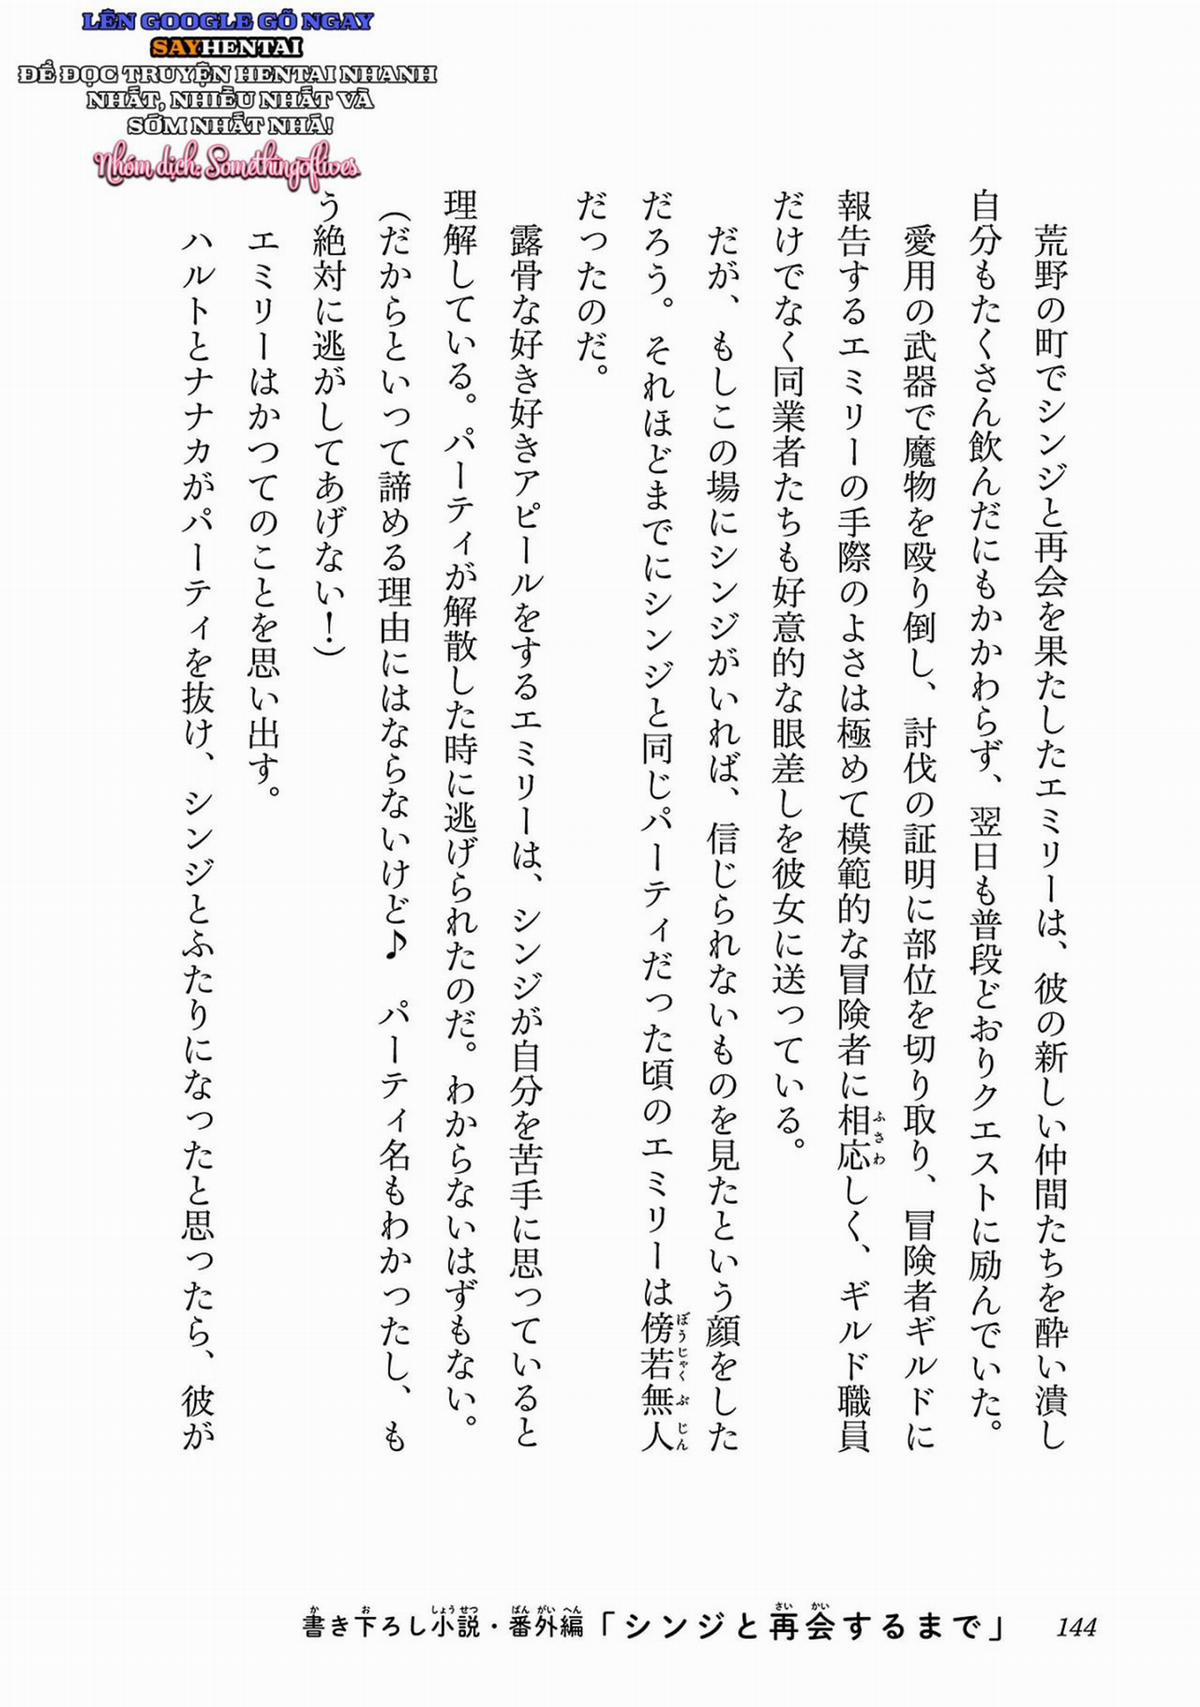 LÊN GOOGLE GÕ NGAY
SAYHENTAI
ĐỂ ĐỌC TRUYỆN HENTAI NHANH
NHẤT, NHIỀU NHẤT VÀ
SỚM NHẤT NHÁ!
Nhóm dịch: Somethingoflives
荒野の町でシンジと再会を果たしたエミリーは、彼の新しい仲間たちを酔い潰し
自分もたくさん飲んだにもかかわらず、翌日も普段どおりクエストに励んでいた。
愛用の武器で魔物を殴り倒し、討伐の証明に部位を切り取り、冒険者ギルドに
報告するエミリーの手際のよさは極めて模範的な冒険者に相応しく、ギルド職員
だけでなく同業者たちも好意的な眼差しを彼女に送っている。
だが、もしこの場にシンジがいれば、信じられないものを見たという顔をした
だろう。それほどまでにシンジと同じパーティだった頃のエミリーは傍若無人
だったのだ。
露骨な好き好きアピールをするエミリーは、シンジが自分を苦手に思っていると
理解している。パーティが解散した時に逃げられたのだ。わからないはずもない。
（だからといって諦める理由にはならないけど♪　パーティ名もわかったし、も
う絶対に逃がしてあげない！）
エミリーはかつてのことを思い出す。
ハルトとナナカがパーティを抜け、シンジとふたりになったと思ったら、彼が
書き下ろし小説・番外編「シンジと再会するまで」 144